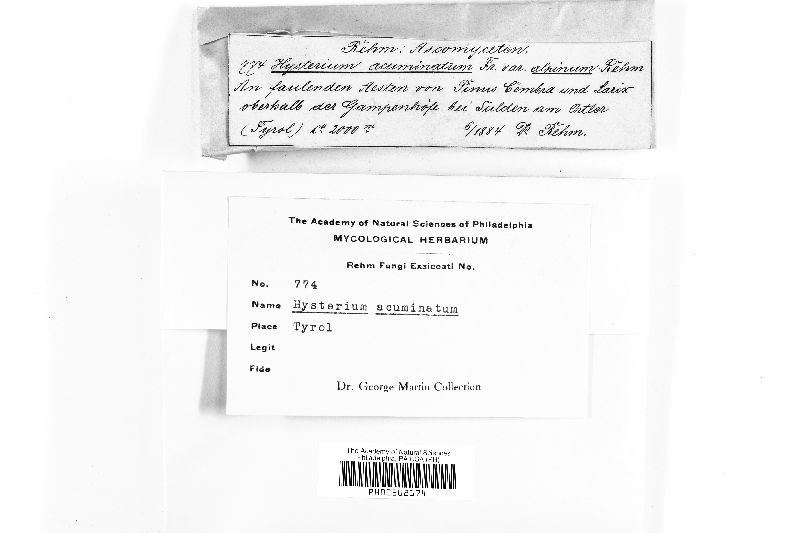 Rehm: Ascomyceten.
774 Hysterium acuminatum Fr. var. alpinum Rehm
An faulenden Aesten von Pinus Cembra und Larix
oberhalb der Gampenhöfe bei Sulden am Ortler
(Tyrol) ca 2000 m 8/1884 Dr Rehm.
The Academy of Natural Sciences of Philadelphia
MYCOLOGICAL HERBARIUM
Rehm Fungi Exsiccati No.
No. 774
Name Hysterium acuminatum
Place Tyrol
Legit
Fide
Dr. George Martin Collection
The Academy of Natural Sciences
Philadelphia, PA USA (PH)